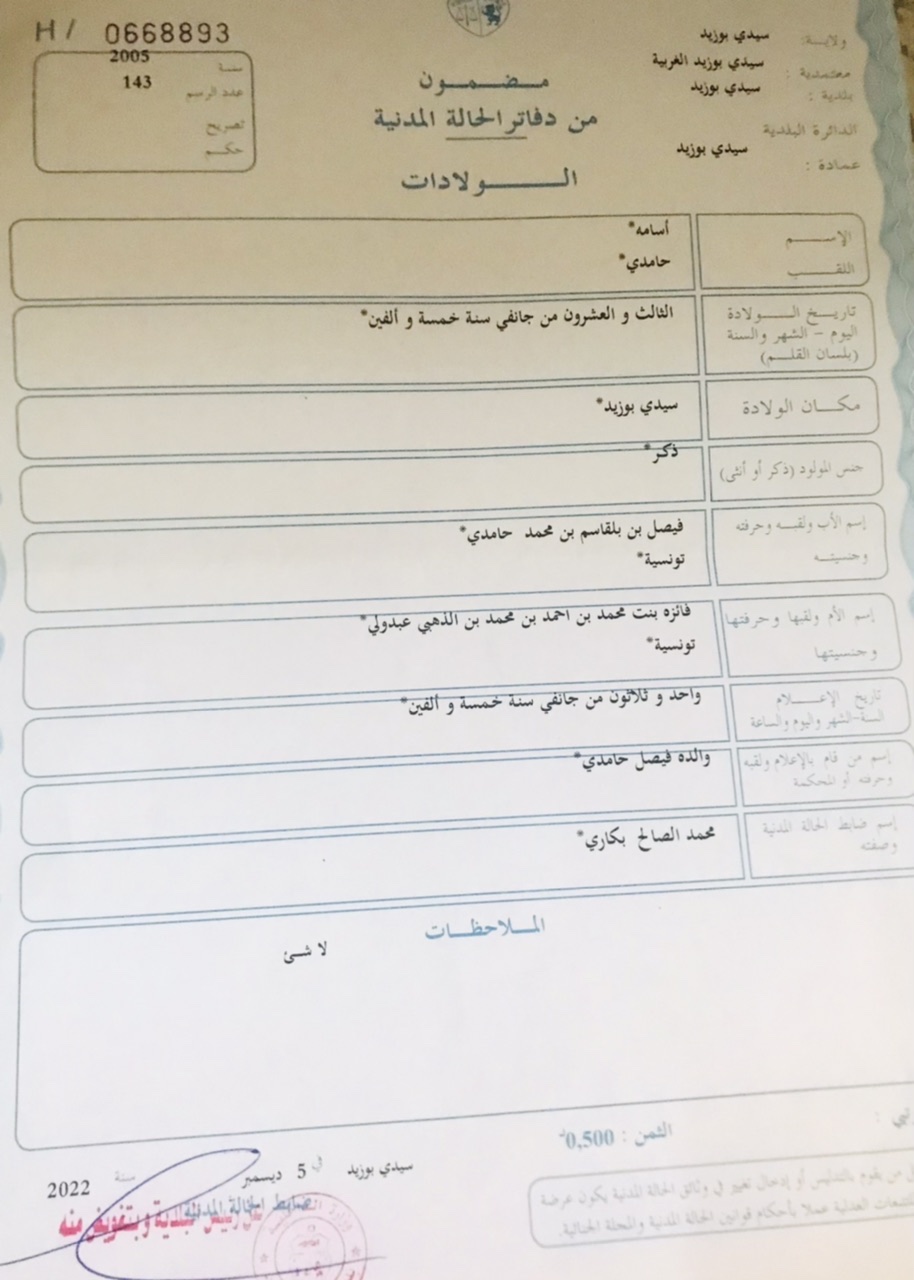 H/ 0668893
سنة 2005
عدد الرسم 143
تصريح
حكم
ولاية: سيدي بوزيد
معتمدية : سيدي بوزيد الغربية
بلدية : سيدي بوزيد
الدائرة البلدية
عمادة : سيدي بوزيد
مضمون
من دفاتر الحالة المدنية
الولادات
الإسم أسامه*
اللقب حامدي*
تاريخ الولادة الثالث و العشرون من جانفي سنة خمسة و ألفين*
اليوم - الشهر والسنة
(بلسان القلم)
مكان الولادة سيدي بوزيد*
جنس المولود (ذكر أو أنثى) ذكر*
إسم الأب ولقبه وحرفته فيصل بن بلقاسم بن محمد حامدي*
وجنسيته تونسية*
إسم الأم ولقبها وحرفتها فائزه بنت محمد بن احمد بن محمد بن الذهبي عبدولي*
وجنسيتها تونسية*
تاريخ الإعلام واحد و ثلاثون من جانفي سنة خمسة و ألفين*
السنة-الشهر واليوم والساعة
إسم من قام بالإعلام ولقبه والده فيصل حامدي*
وحرفته أو المحكمة
إسم ضابط الحالة المدنية محمد الصالح بكاري*
وصفته
الملاحظات
لا شئ
الثمن : 0,500
سيدي بوزيد في 5 ديسمبر سنة 2022
ضابط الحالة المدنية
وبتفويض منه
من يقوم بالتدليس أو إدخال تغيير في وثائق الحالة المدنية يكون عرضة
العدلية عملا بأحكام قوانين الحالة المدنية والمجلة الجنائية.